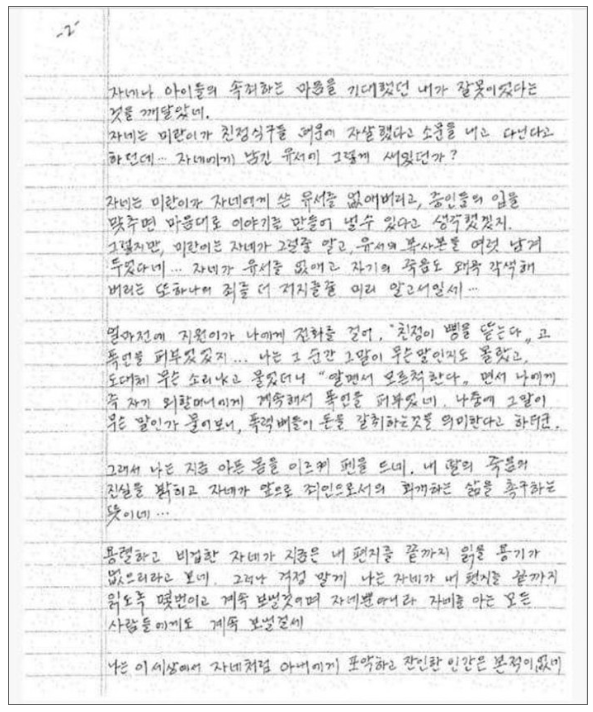 -2-
자네나 아이들의 속죄하는 마음을 기대했던 내가 잘못이었다는
것을 깨달았네.
자네는 미란이가 친정식구들 때문에 자살했다고 소문을 내고 다닌다고
하던데... 자네에게 남긴 유서에 그렇게 써있던가?
자네는 미란이가 자네에게 쓴 유서를 없애버리고, 증인들의 입을
맞추면 마음대로 이야기를 만들어 낼수 있다고 생각했겠지.
그렇지만, 미란이는 자네가 그럴줄 알고, 유서의 복사본을 여럿 남겨
두었다네... 자네가 유서를 없애고 자기의 죽음도 왜곡 각색해
버리는 또하나의 죄를 더 저지를줄 미리 알고서일세...
얼마전에 지원이가 나에게 전화를 걸어, "친정이 삥을 뜯는다" 고
폭언을 퍼부었었지... 나는 그 순간 그말이 무슨말인지도 몰랐고,
도대체 무슨 소리냐고 물었더니 "알면서 모른척한다" 면서 나에게
즉 자기 외할머니에게 계속해서 폭언을 퍼부었네. 나중에 그말이
무슨 말인가 물어보니, 폭력배들이 돈을 갈취하는것을 의미한다고 하더군.
그래서 나는 지금 아픈 몸을 이르켜 펜을 드네. 내 딸의 죽음의
진실을 밝히고 자네가 앞으로 죄인으로서의 회개하는 삶을 촉구하는
뜻이네...
용렬하고 비겁한 자네가 지금은 내 편지를 끝까지 읽을 용기가
없으리라고 보네. 그러나 걱정 말게 나는 자네가 내 편지를 끝까지
읽도록 몇번이고 계속 보낼것이며 자네뿐아니라 자네를 아는 모든
사람들에게도 계속 보낼걸세
나는 이 세상에서 자네처럼 아내에게 포악하고 잔인한 인간은 본적이없네